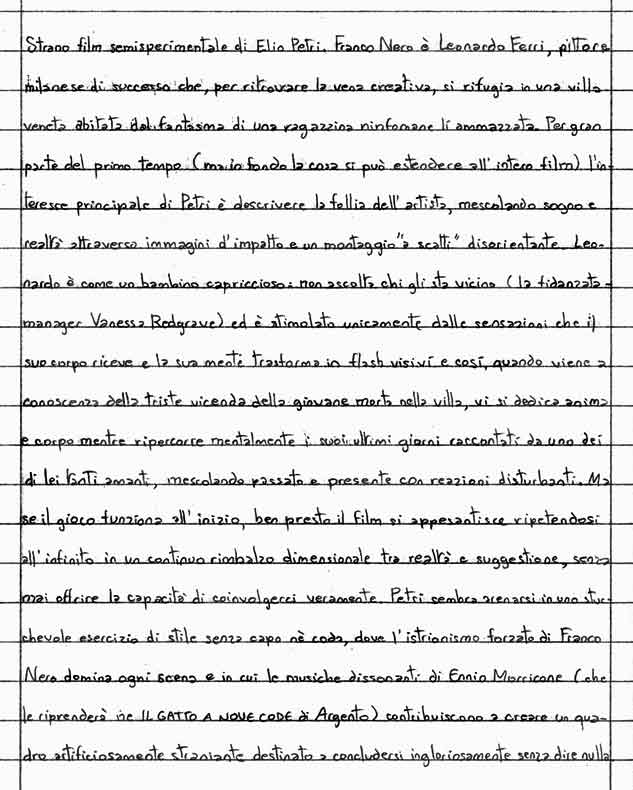 Strano film semisperimentale di Elio Petri. Franco Nero è Leonardo Ferri, pittore
milanese di successo che, per ritrovare la vena creativa, si rifugia in una villa
veneta abitata dal fantasma di una ragazzina ninfomane lì ammazzata. Per gran
parte del primo tempo (ma in fondo la cosa si può estendere all'intero film) l'in-
teresse principale di Petri è descrivere la follia dell'artista, mescolando sogno e
realtà attraverso immagini d'impatto e un montaggio "a scatti" disorientante. Leo-
nardo è come un bambino capriccioso: non ascolta chi gli sta vicino (la fidanzata-
manager Vanessa Redgrave) ed è stimolato unicamente dalle sensazioni che il
suo corpo riceve e la sua mente trasforma in flash visivi e così, quando viene a
conoscenza della triste vicenda della giovane morta nella villa, vi si dedica anima
e corpo mentre ripercorre mentalmente i suoi ultimi giorni raccontati da uno dei
di lei tanti amanti, mescolando passato e presente con reazioni disturbanti. Ma
se il gioco funziona all'inizio, ben presto il film si appesantisce ripetendosi
all'infinito in un continuo rimbalzo dimensionale tra realtà e suggestione, senza
mai offrire la capacità di coinvolgerci veramente. Petri sembra arenarsi in uno stuc-
chevole esercizio di stile senza capo nè coda, dove l'istrionismo forzato di Franco
Nero domina ogni scena e in cui le musiche dissonanti di Ennio Morricone (che
le riprenderà ne IL GATTO A NOVE CODE di Argento) contribuiscono a creare un qua-
dro artificiosamente straniante destinato a concludersi ingloriosamente senza dire nulla